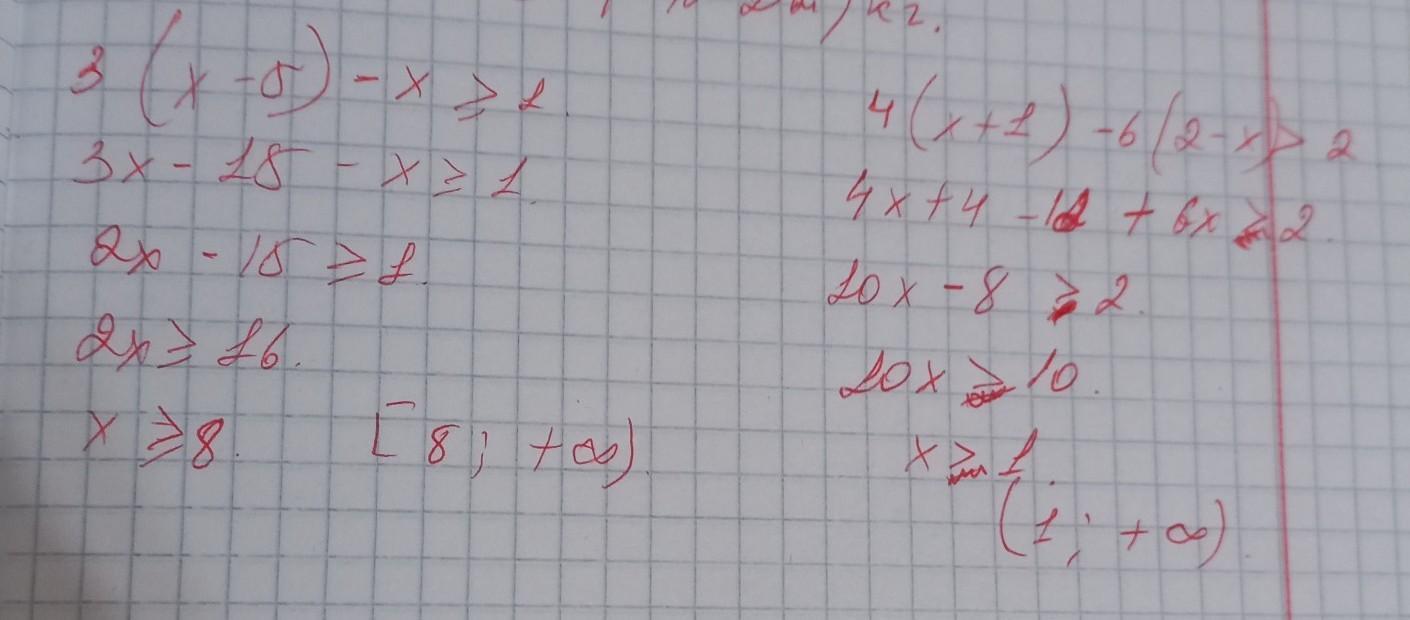 3 (x - 5) - x ≥ 1
3x - 15 - x ≥ 1.
2x - 15 ≥ 1.
2x ≥ 16.
x ≥ 8. [8; +∞).
4(x+1) - 6(2-x) > 2
4x + 4 - 12 + 6x > 2.
10x - 8 > 2.
10x > 10.
x > 1.
(1; +∞).